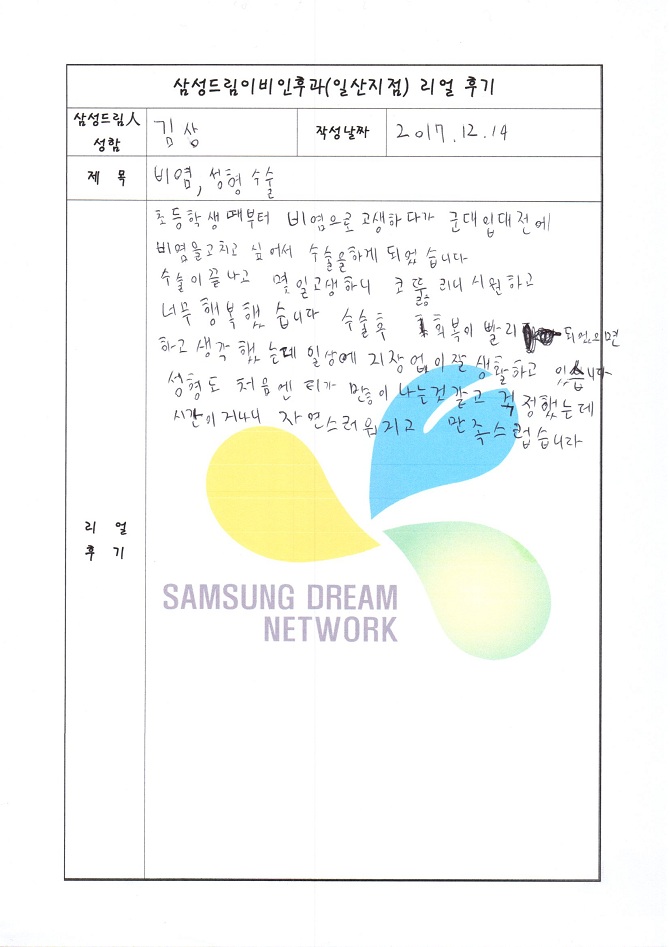 삼성드림이비인후과(일산지점) 리얼 후기
삼성드림人 성함
김상
작성날짜
2017.12.14
제 목
비염, 성형 수술
리 얼
후 기
초등학생때부터 비염으로 고생하다가 군대입대전에
비염을고치고 싶어서 수술을하게 되었습니다
수술이 끝나고 몇일고생하니 코 뚤리니 시원하고
너무 행복했습니다 수술후 회복이 빨리 되었으면
하고 생각했는데 일상에 지장업이잘 생활하고 있습니다
성형도 처음엔 티가 만이 나는것같고 걱정했는데
시간이 지나니 자연스러워지고 만족스럽습니다
SAMSUNG DREAM
NETWORK